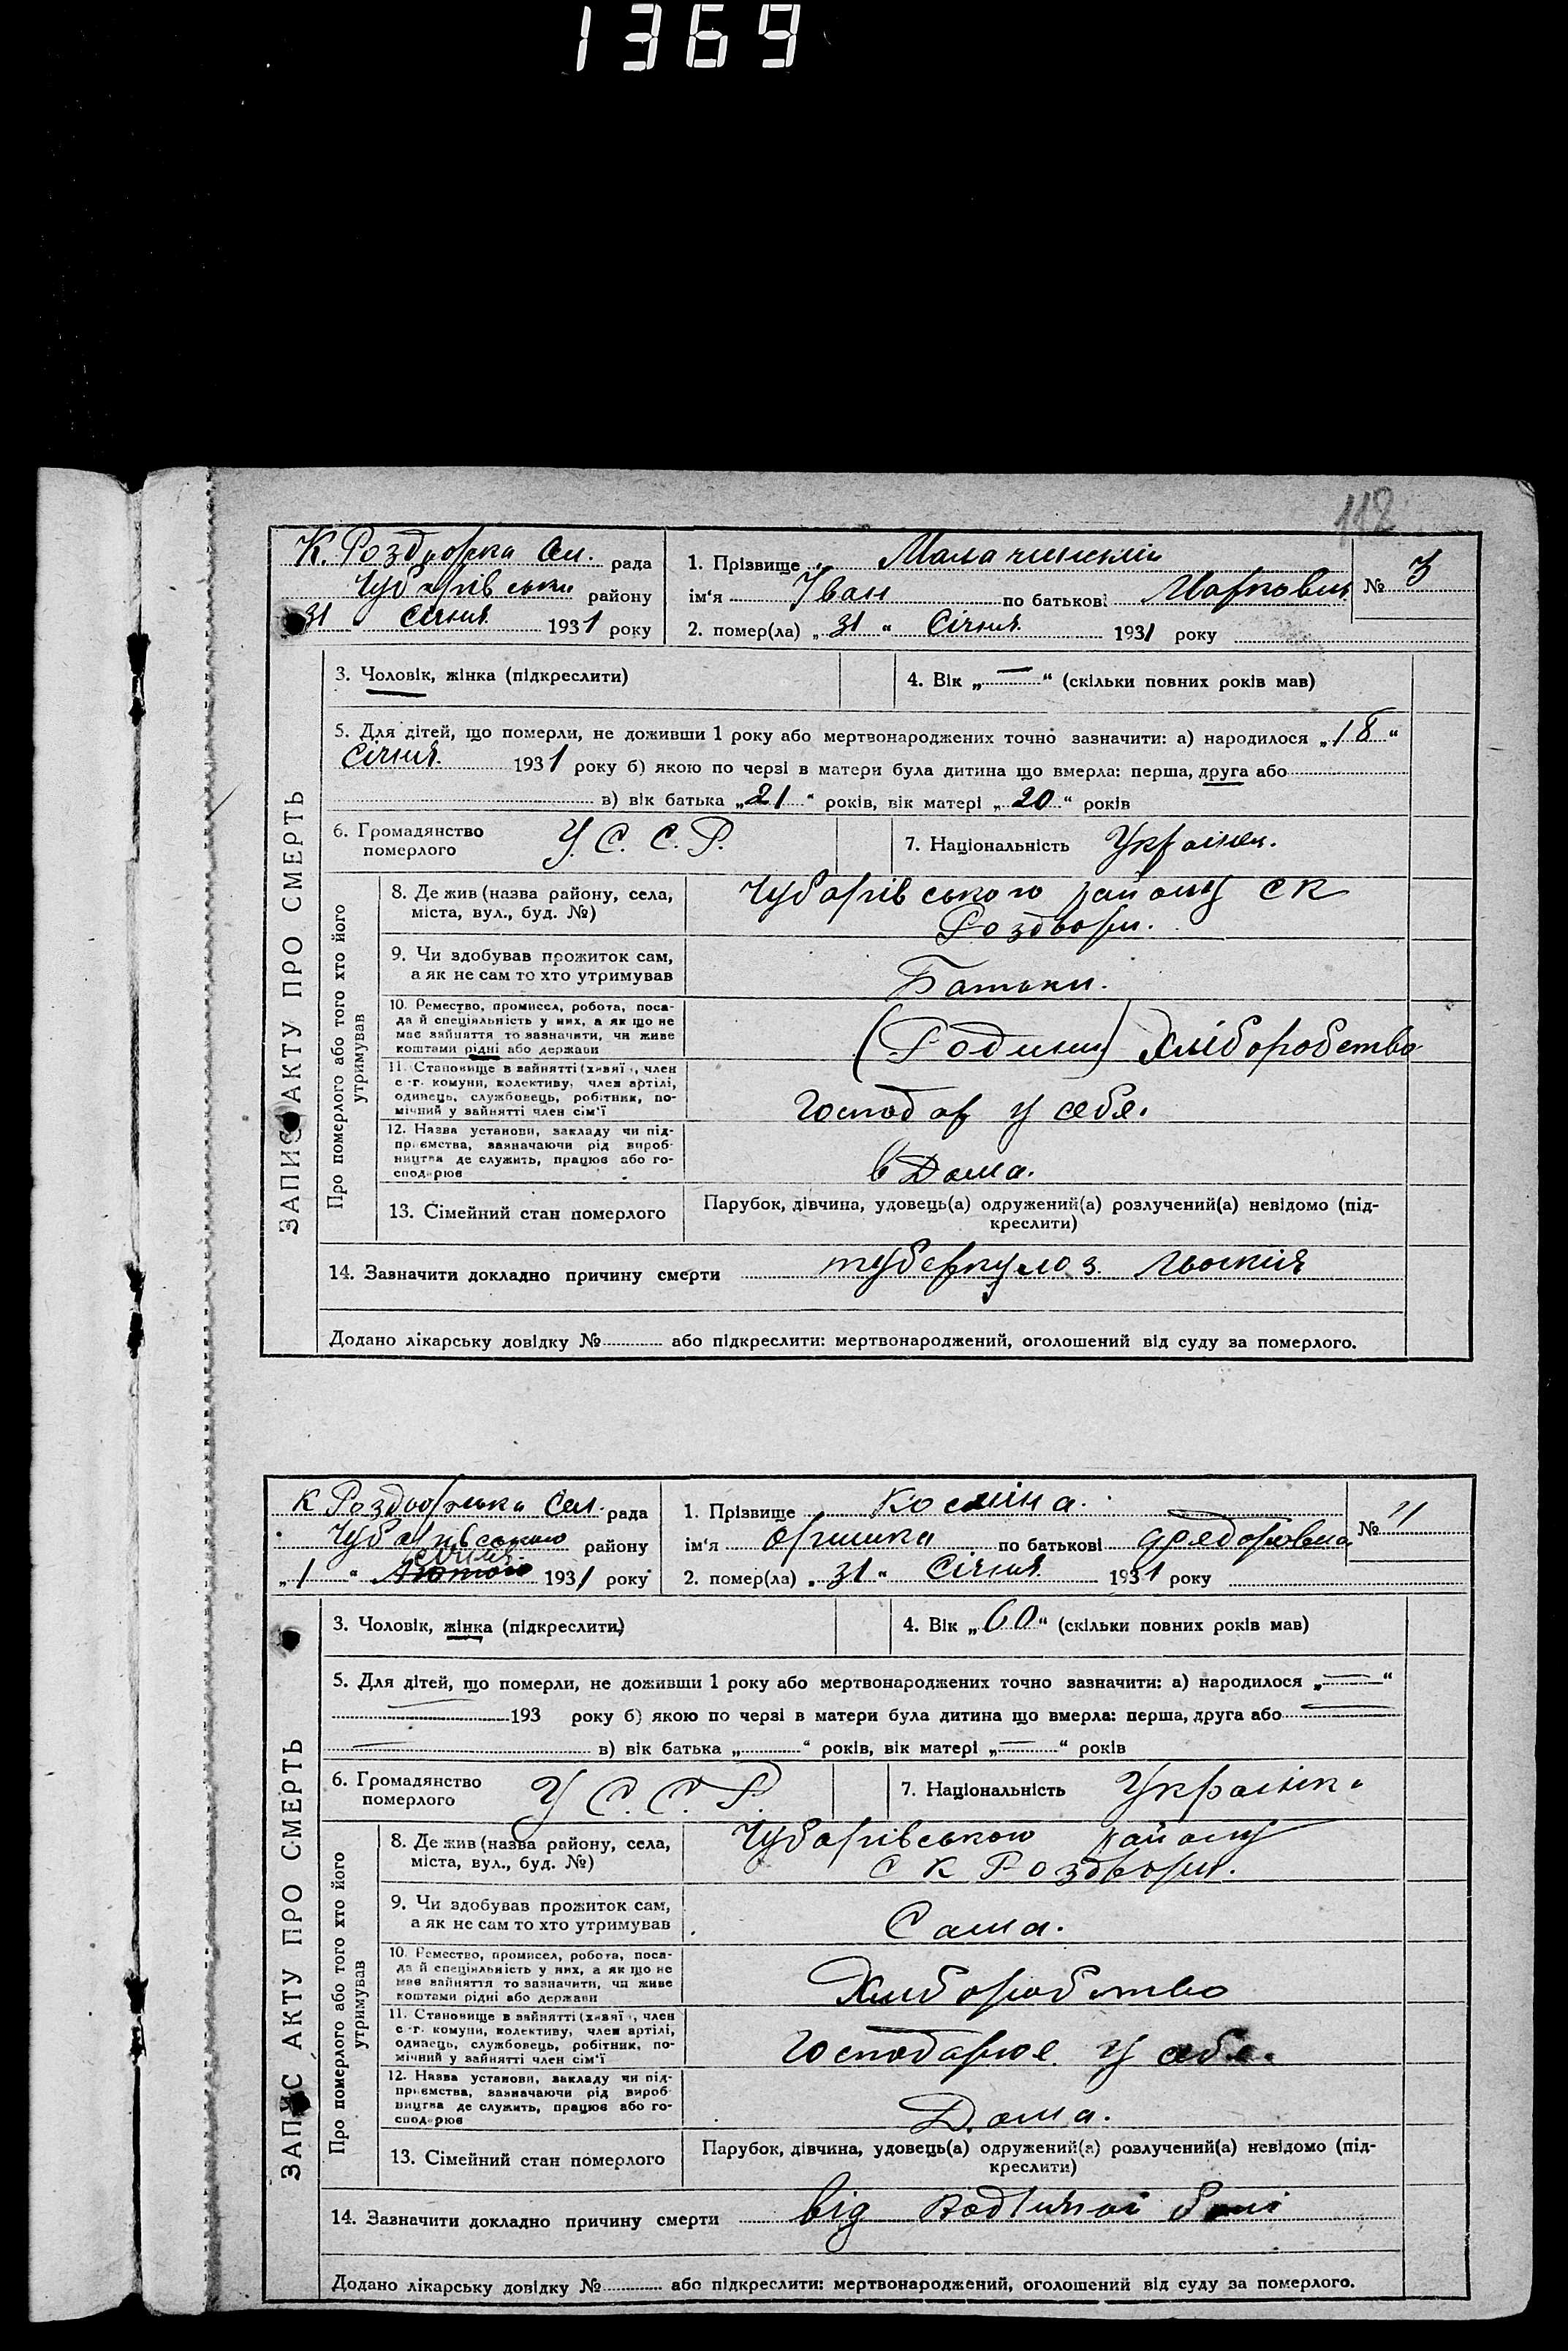 1369
112
К. Роздорська Сіл. рада
Чубарівськи району
31 Січня 1931 року
1. Прізвище Малачинський
№ 3
ім'я Іван по батькові Маркович
2. помер(ла) „31" Січня 1931 року
3. Чоловік, жінка (підкреслити)
4. Вік „—" (скільки повних років мав)
5. Для дітей, що померли, не доживши 1 року або мертвонароджених точно зазначити: а) народилося „18"
Січня 1931 року б) якою по черзі в матери була дитина що вмерла: перша, друга або
в) вік батька „21" років, вік матері „20" років
6. Громадянство
померлого
У. С. С. Р.
7. Національність
8. Де жив (назва району, села,
міста, вул., буд. №)
Чубарівського району С К
Роздори.
9. Чи здобував прожиток сам,
а як не сам то хто утримував
Батьки.
10. Ремество, промисел, робота, поса-
да й спеціяльність у них, а як що не
має зайняття то зазначити, чи живе
коштами рідні або держави
(Родини) Хліборобство
11. Становище в зайнятті (хазяї, член
с-г. комуни, колективу, член артілі,
одинець, службовець, робітник, по-
мічний у зайнятті член сім'ї
Господар у себе.
12. Назва установи, закладу чи під-
приємства, зазначаючи рід вироб-
ництва де служить, працює або го-
сподарює
в Дома.
13. Сімейний стан померлого
Парубок, дівчина, удовець(а) одружений(а) розлучений(а) невідомо (під-
креслити)
14. Зазначити докладно причину смерти туберкулоз
Додано лікарську довідку № або підкреслити: мертвонароджений, оголошений від суду за померлого.
ЗАПИС АКТУ ПРО СМЕРТЬ
Про померлого або того хто його
утримував
К Роздорська Сел. рада
Чубарівського району
січня
„1" Лютого 1931 року
1. Прізвище Косміна.
№ 4
ім'я Оришка по батькові Федоровна
2. помер(ла) „31" Січня 1931 року
3. Чоловік, жінка (підкреслити)
4. Вік „60" (скільки повних років мав)
5. Для дітей, що померли, не доживши 1 року або мертвонароджених точно зазначити: а) народилося „—"
193 року б) якою по черзі в матери була дитина що вмерла: перша, друга або
в) вік батька „" років, вік матері „—" років
6. Громадянство
померлого
У С. С. Р.
7. Національність Українк.
8. Де жив (назва району, села,
міста, вул., буд. №)
Чубарівського району
С К Роздори.
9. Чи здобував прожиток сам,
а як не сам то хто утримував
Сама.
10. Ремество, промисел, робота, поса-
да й спеціяльність у них, а як що не
має зайняття то зазначити, чи живе
коштами рідні або держави
Хліборобство
11. Становище в зайнятті (хазяї, член
с-г. комуни, колективу, член артілі,
одинець, службовець, робітник, по-
мічний у зайнятті член сім'ї
Господарює у себе.
12. Назва установи, закладу чи під-
приємства, зазначаючи рід вироб-
ництва де служить, працює або го-
сподарює
Дома.
13. Сімейний стан померлого
Парубок, дівчина, удовець(а) одружений(а) розлучений(а) невідомо (під-
креслити)
14. Зазначити докладно причину смерти від
Додано лікарську довідку № або підкреслити: мертвонароджений, оголошений від суду за померлого.
ЗАПИС АКТУ ПРО СМЕРТЬ
Про померлого або того хто його
утримував